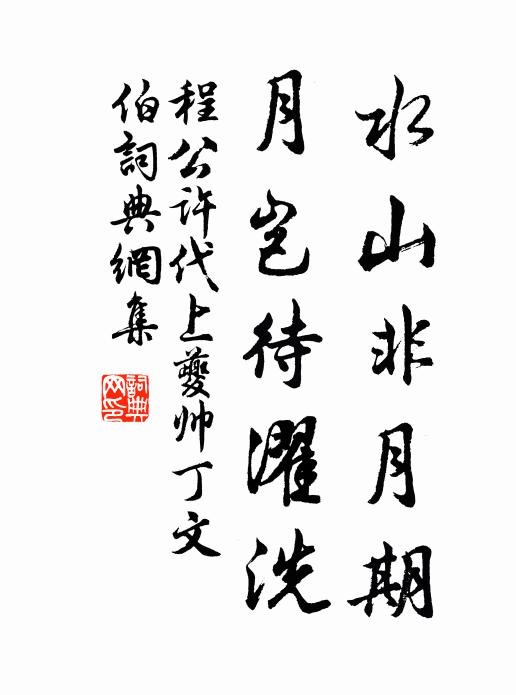 水山非月期
月岂待濯洗
程公许代上夔帅丁文
伯詞典網集
詞典網印